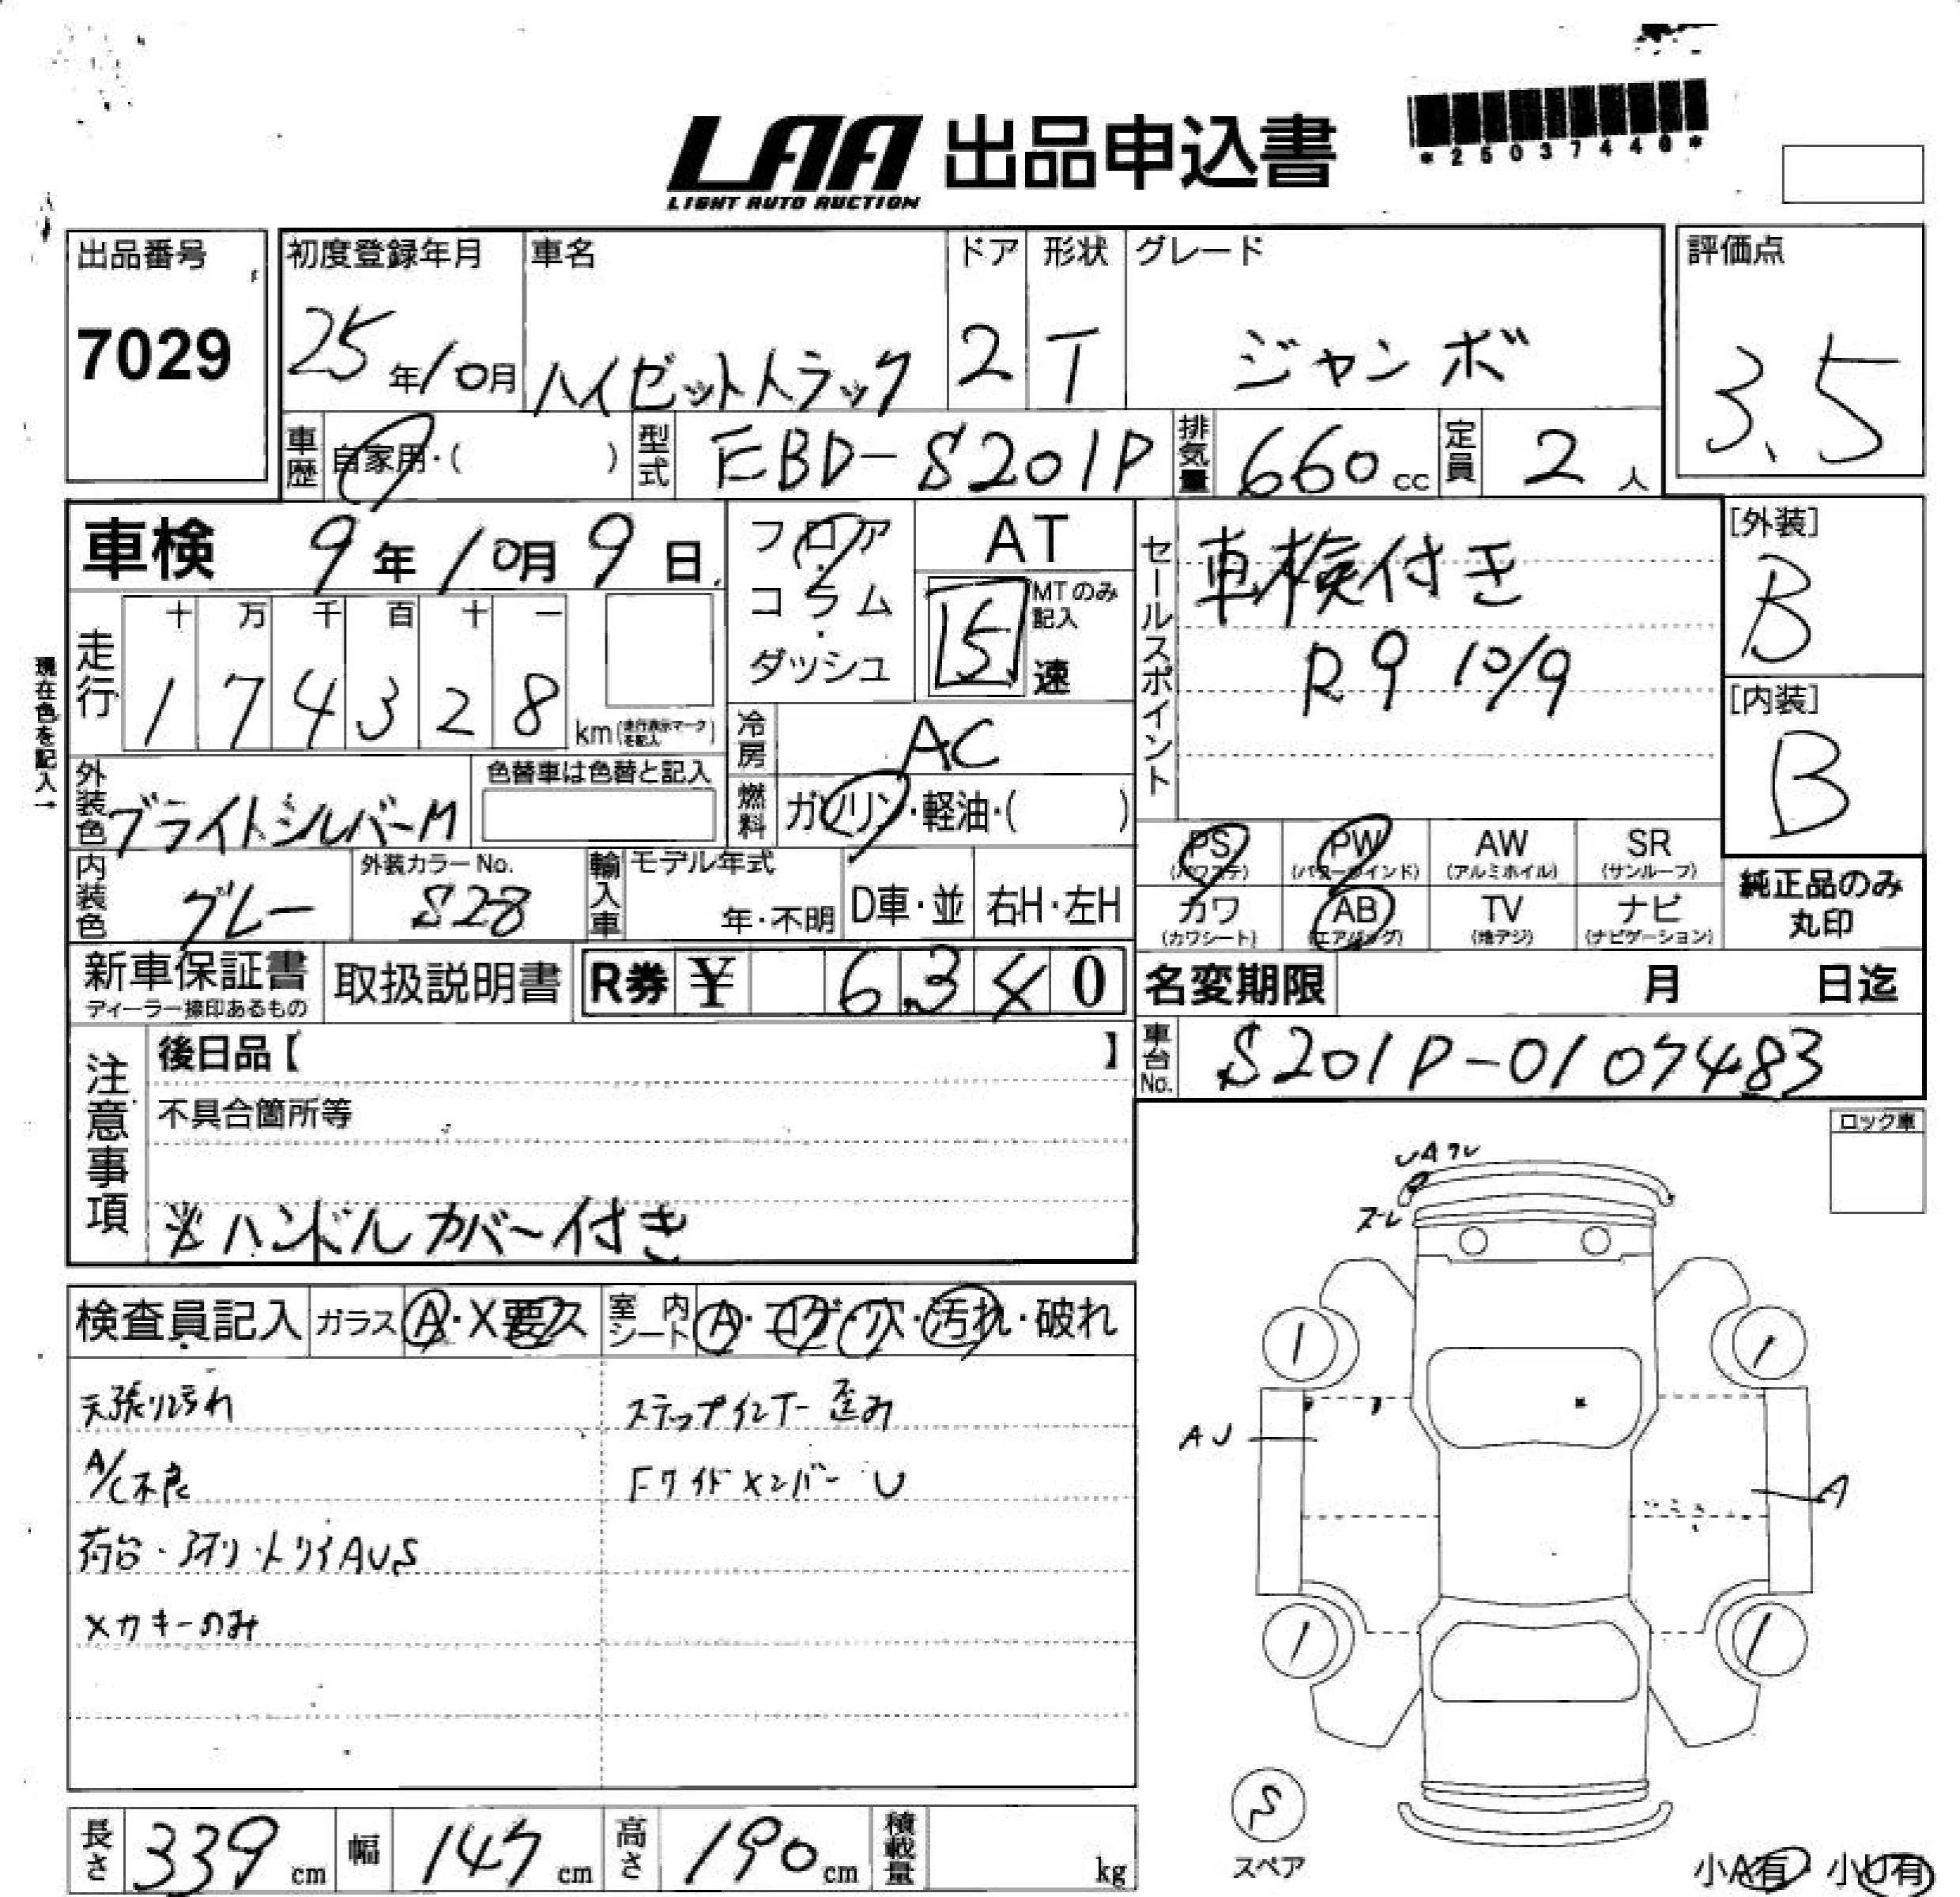 LAA 出品申込書
LIGHT AUTO AUCTION
*25037440*
出品番号
7029
初度登録年月 車名 ドア 形状 グレード
25年10月 ハイゼットトラック 2 T ジャンボ
評価点
3.5
車歴 自家用・( ) 型式 EBD-S201P 排気量 660cc 定員 2人
車検 9年10月9日
フロア・コラム・ダッシュ
AT
MTのみ記入
5速
セールスポイント
車検付き
R9 10/9
[外装]
B
[内装]
B
現在色を記入→
走行 十 万 千 百 十 一
1 7 4 3 2 8 km(走行表示マークを記入)
冷房 AC
燃料 ガソリン・軽油・( )
外装色 ブライトシルバーM
色替車は色替と記入
内装色 グレー
外装カラーNo.
S28
輸入車 モデル年式
年・不明 D車・並 右H・左H
PS (パワステ) PW (パワーウインド) AW (アルミホイル) SR (サンルーフ)
カワ (カワシート) AB (エアバッグ) TV (地デジ) ナビ (ナビゲーション)
純正品のみ
丸印
新車保証書
ディーラー捺印あるもの
取扱説明書
R券 ¥ 6,340
名変期限 月 日迄
車台No. S201P-0107483
注意事項
後日品【 】
不具合箇所等
※ハンドルカバー付き
ロック車
検査員記入 ガラス A・X要ス 室内シート A・コゲ・穴・汚れ・破れ
天張り汚れ
A/C不良
荷台・アオリ・トリイAUS
メカキーのみ
ステップインナー歪み
Fサイドメンバー U
UAワレ
ズレ
AU
A
スペア
S
小A有・小U有
長さ 339cm 幅 147cm 高さ 190cm 積載量 kg